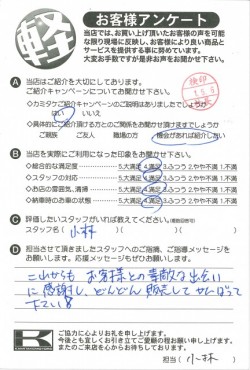 軽
お客様アンケート
当店では、お買い上げ頂いたお客様の声を可
能な限り現場に反映し、お客様により良い商品と
サービスを提供する事に努めています。
大変お手数ですが是非お声をお聞かせ下さい。
検印
A 当店はご紹介を大切にしております。
ご紹介キャンペーンについてお聞かせ下さい。
<カミタケご紹介キャンペーンのご説明はありましたでしょうか
はい いいえ
<具体的にご紹介頂ける方とのご関係をお聞かせ頂けますでしょうか
ご親族 ご友人 職場の方 機会があれば紹介したい
B 当店を実際にご利用になった印象をお聞かせ下さい。
<総合的な満足度 5.大満足 4.満足 3.ふつう 2.やや不満 1.不満
<スタッフの対応 5.大満足 4.満足 3.ふつう 2.やや不満 1.不満
<お店の雰囲気、清掃 5.大満足 4.満足 3.ふつう 2.やや不満 1.不満
<納車時のお車の状態 5.大満足 4.満足 3.ふつう 2.やや不満 1.不満
C 評価したいスタッフがいれば教えてください。(複数回答可)
スタッフ名( 小林 )
D 担当させて頂きましたスタッフへのご指摘、ご指導メッセージを
お願いします。応援メッセージもぜひお願いします。
これからも お客様との素敵な出会い
に感謝し、どんどん販売して がんばって
下さい
K
ご協力に心よりお礼を申し上げます。
今後とも宜しくお引き立てご愛顧の程お願い申し上げます、
またのご来店を心からお待ちしております。
担当( 小林 )